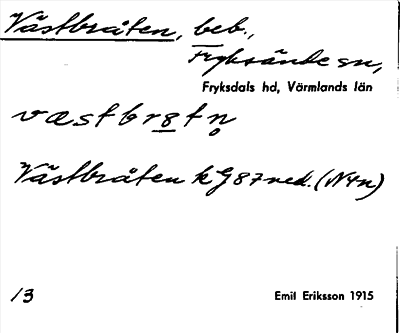 Västbråten, beb.,
Fryksände sn,
Fryksdals hd, Värmlands län
væstbr8tn̥
Västbråten k G 87 ned. (N4n)
13 Emil Eriksson 1915